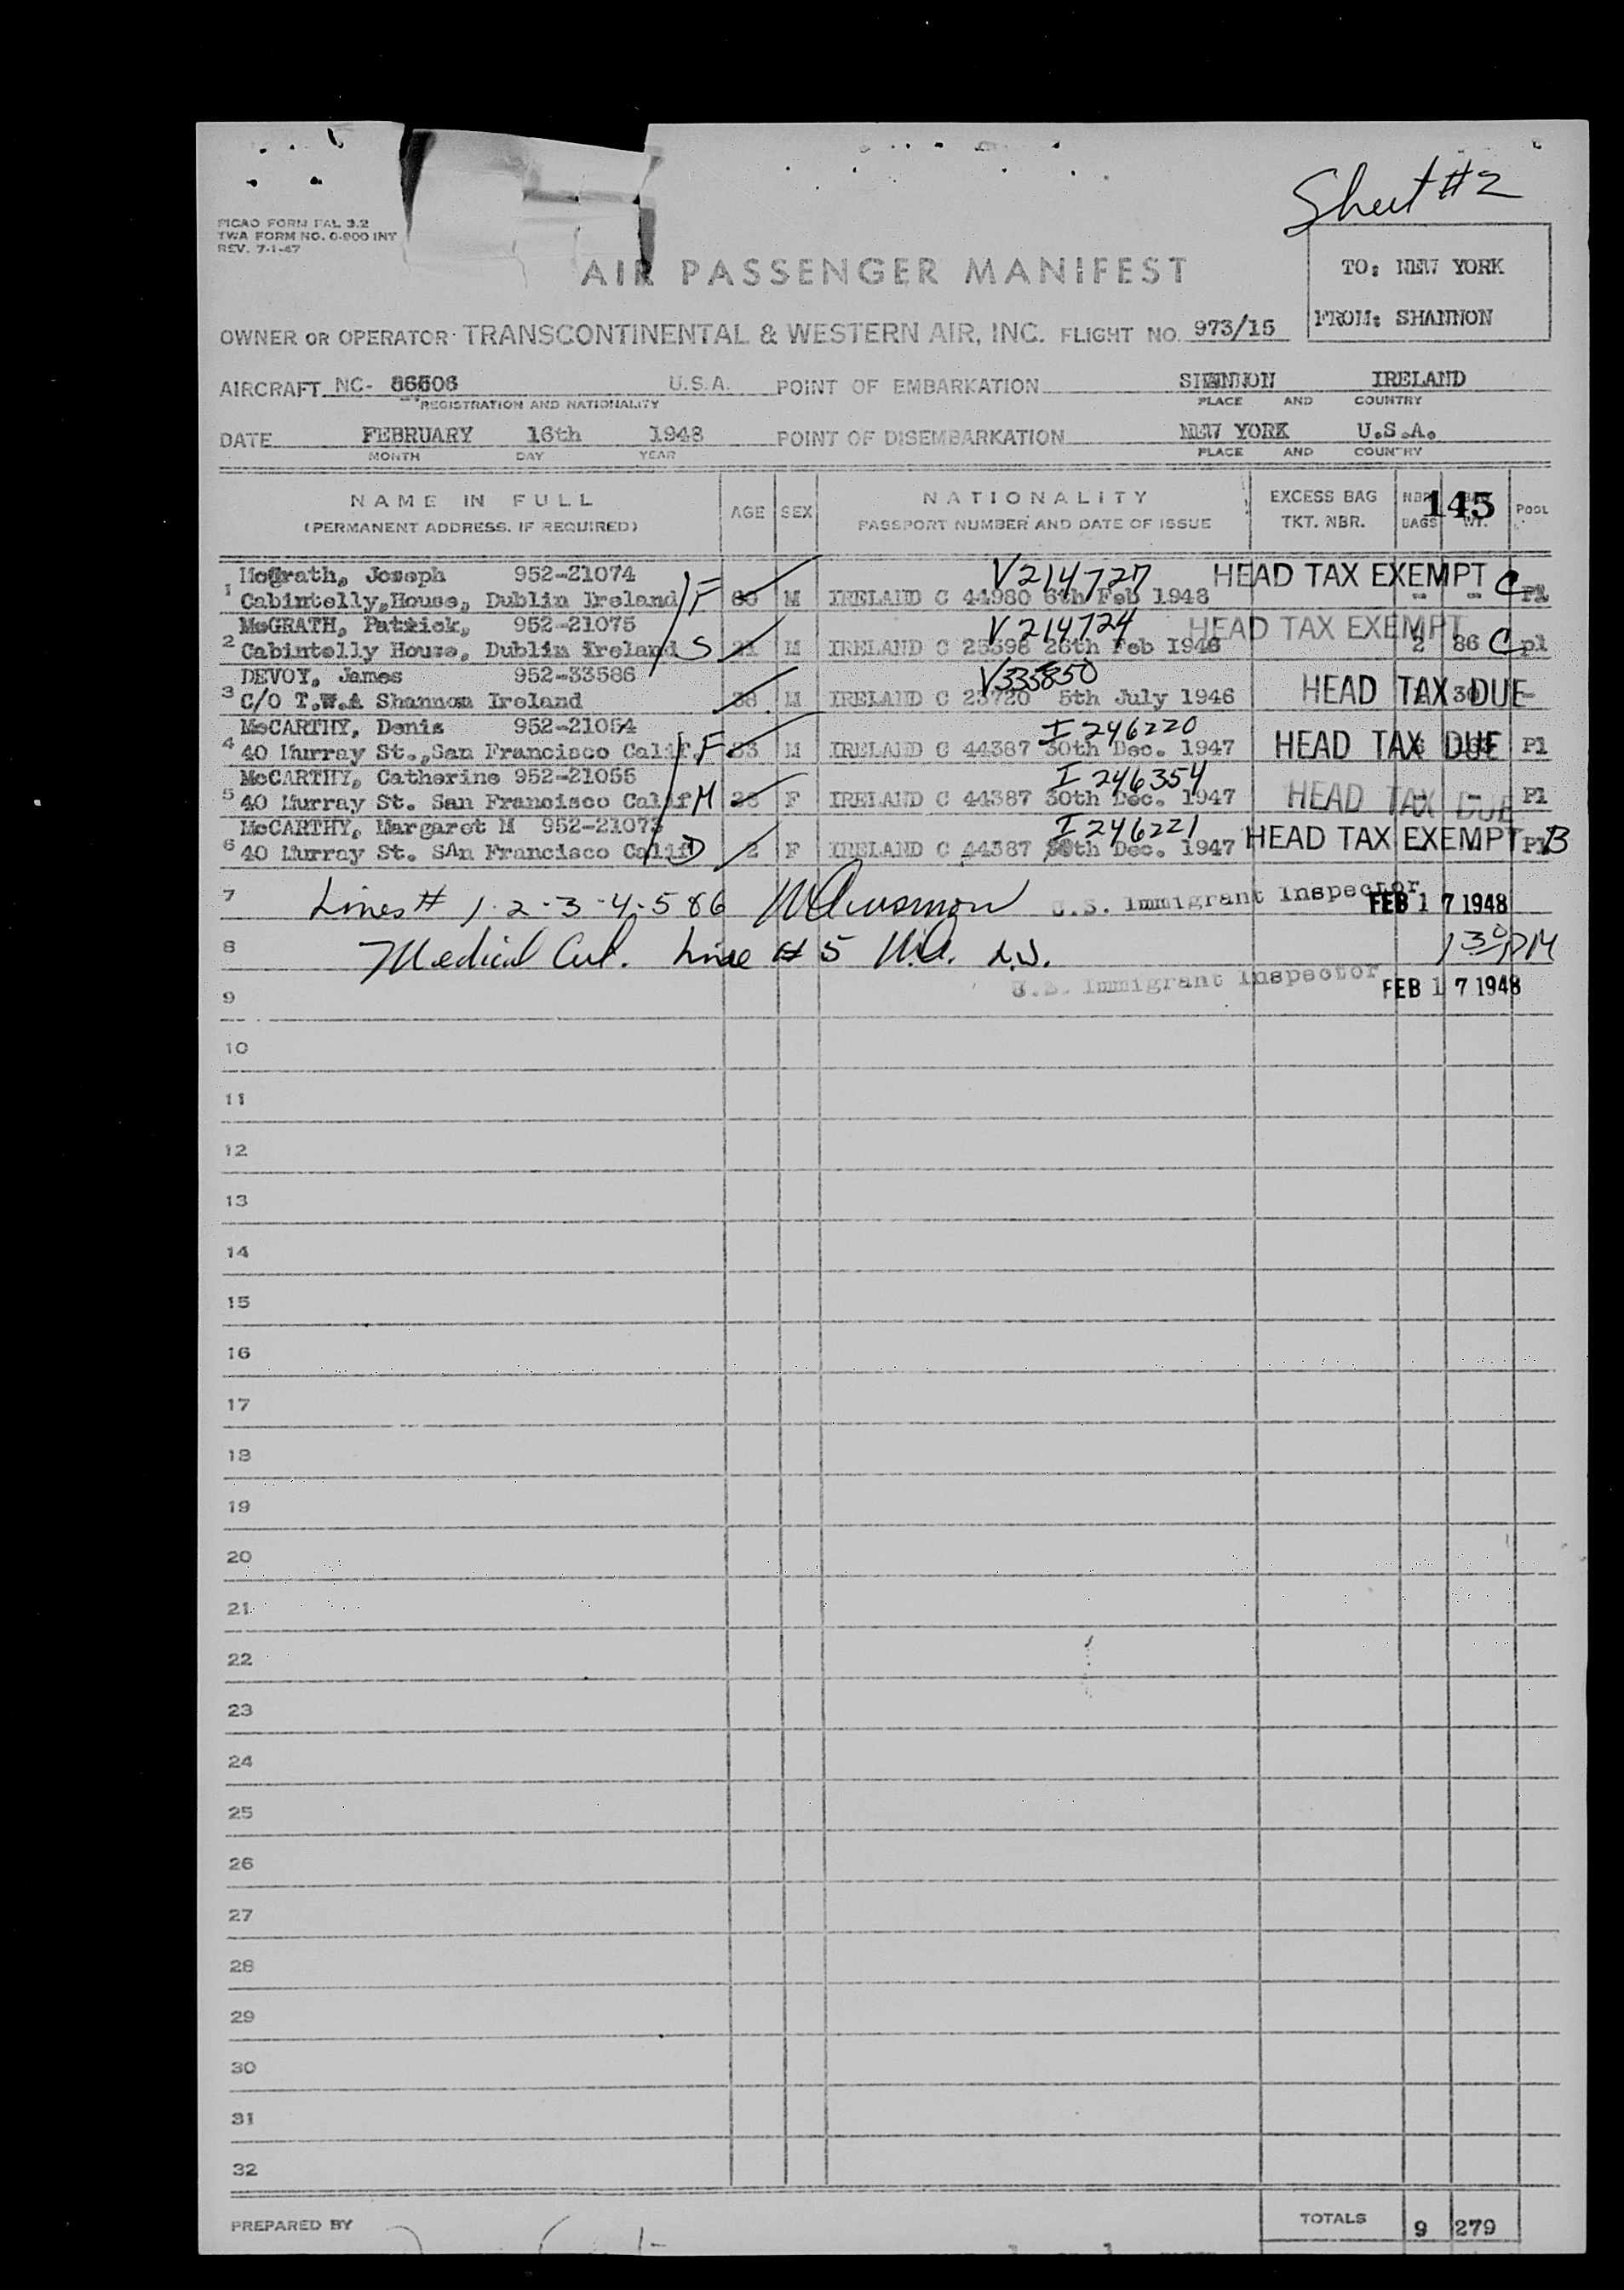 Sheet #2
PICAO FORM FAL 3.2
TWA FORM NO. 0-900 INT
REV. 7-1-47
AIR PASSENGER MANIFEST
TO: NEW YORK
FROM: SHANNON
OWNER OR OPERATOR TRANSCONTINENTAL & WESTERN AIR, INC. FLIGHT NO. 973/15
AIRCRAFT NC- 86506 U.S.A. POINT OF EMBARKATION SHANNON IRELAND
REGISTRATION AND NATIONALITY PLACE AND COUNTRY
DATE FEBRUARY 16th 1948 POINT OF DISEMBARKATION NEW YORK U.S.A.
MONTH DAY YEAR PLACE AND COUNTRY
NAME IN FULL AGE SEX NATIONALITY EXCESS BAG NBR 145 POOL
(PERMANENT ADDRESS, IF REQUIRED) PASSPORT NUMBER AND DATE OF ISSUE TKT. NBR. BAGS WT.
McGrath, Joseph 952-21074 V214727 HEAD TAX EXEMPT C
1 Cabintelly,House, Dublin Ireland F M IRELAND C 44980 6th Feb 1948 - -
McGRATH, Patrick, 952-21075 V214724 HEAD TAX EXEMPT
2 Cabintelly House, Dublin ireland S 21 M IRELAND C 25398 26th Feb 1946 2 86 C pl
DEVOY, James 952-33586 V335850
3 C/O T.W.A Shannon Ireland 38 M IRELAND C 23720 5th July 1946 HEAD TAX DUE 30 -
McCARTHY, Denis 952-21054 I246220
4 40 Murray St.,San Francisco Calif. F 33 M IRELAND C 44387 30th Dec. 1947 HEAD TAX DUE Pl
McCARTHY, Catherine 952-21055 I246354
5 40 Murray St. San Francisco Calif M 28 F IRELAND C 44387 30th Dec. 1947 HEAD TAX DUE - - Pl
McCARTHY, Margaret M 952-21073 I246221
6 40 Murray St. SAn Francisco Calif D 2 F IRELAND C 44387 30th Dec. 1947 HEAD TAX EXEMPT Pl B
7 Lines # 1-2-3-4-5&6 U.S. Immigrant Inspector FEB 17 1948
8 Medical Line #5 130PM
9 U.S. Immigrant Inspector FEB 17 1948
10
11
12
13
14
15
16
17
18
19
20
21
22
23
24
25
26
27
28
29
30
31
32
PREPARED BY TOTALS 9 279